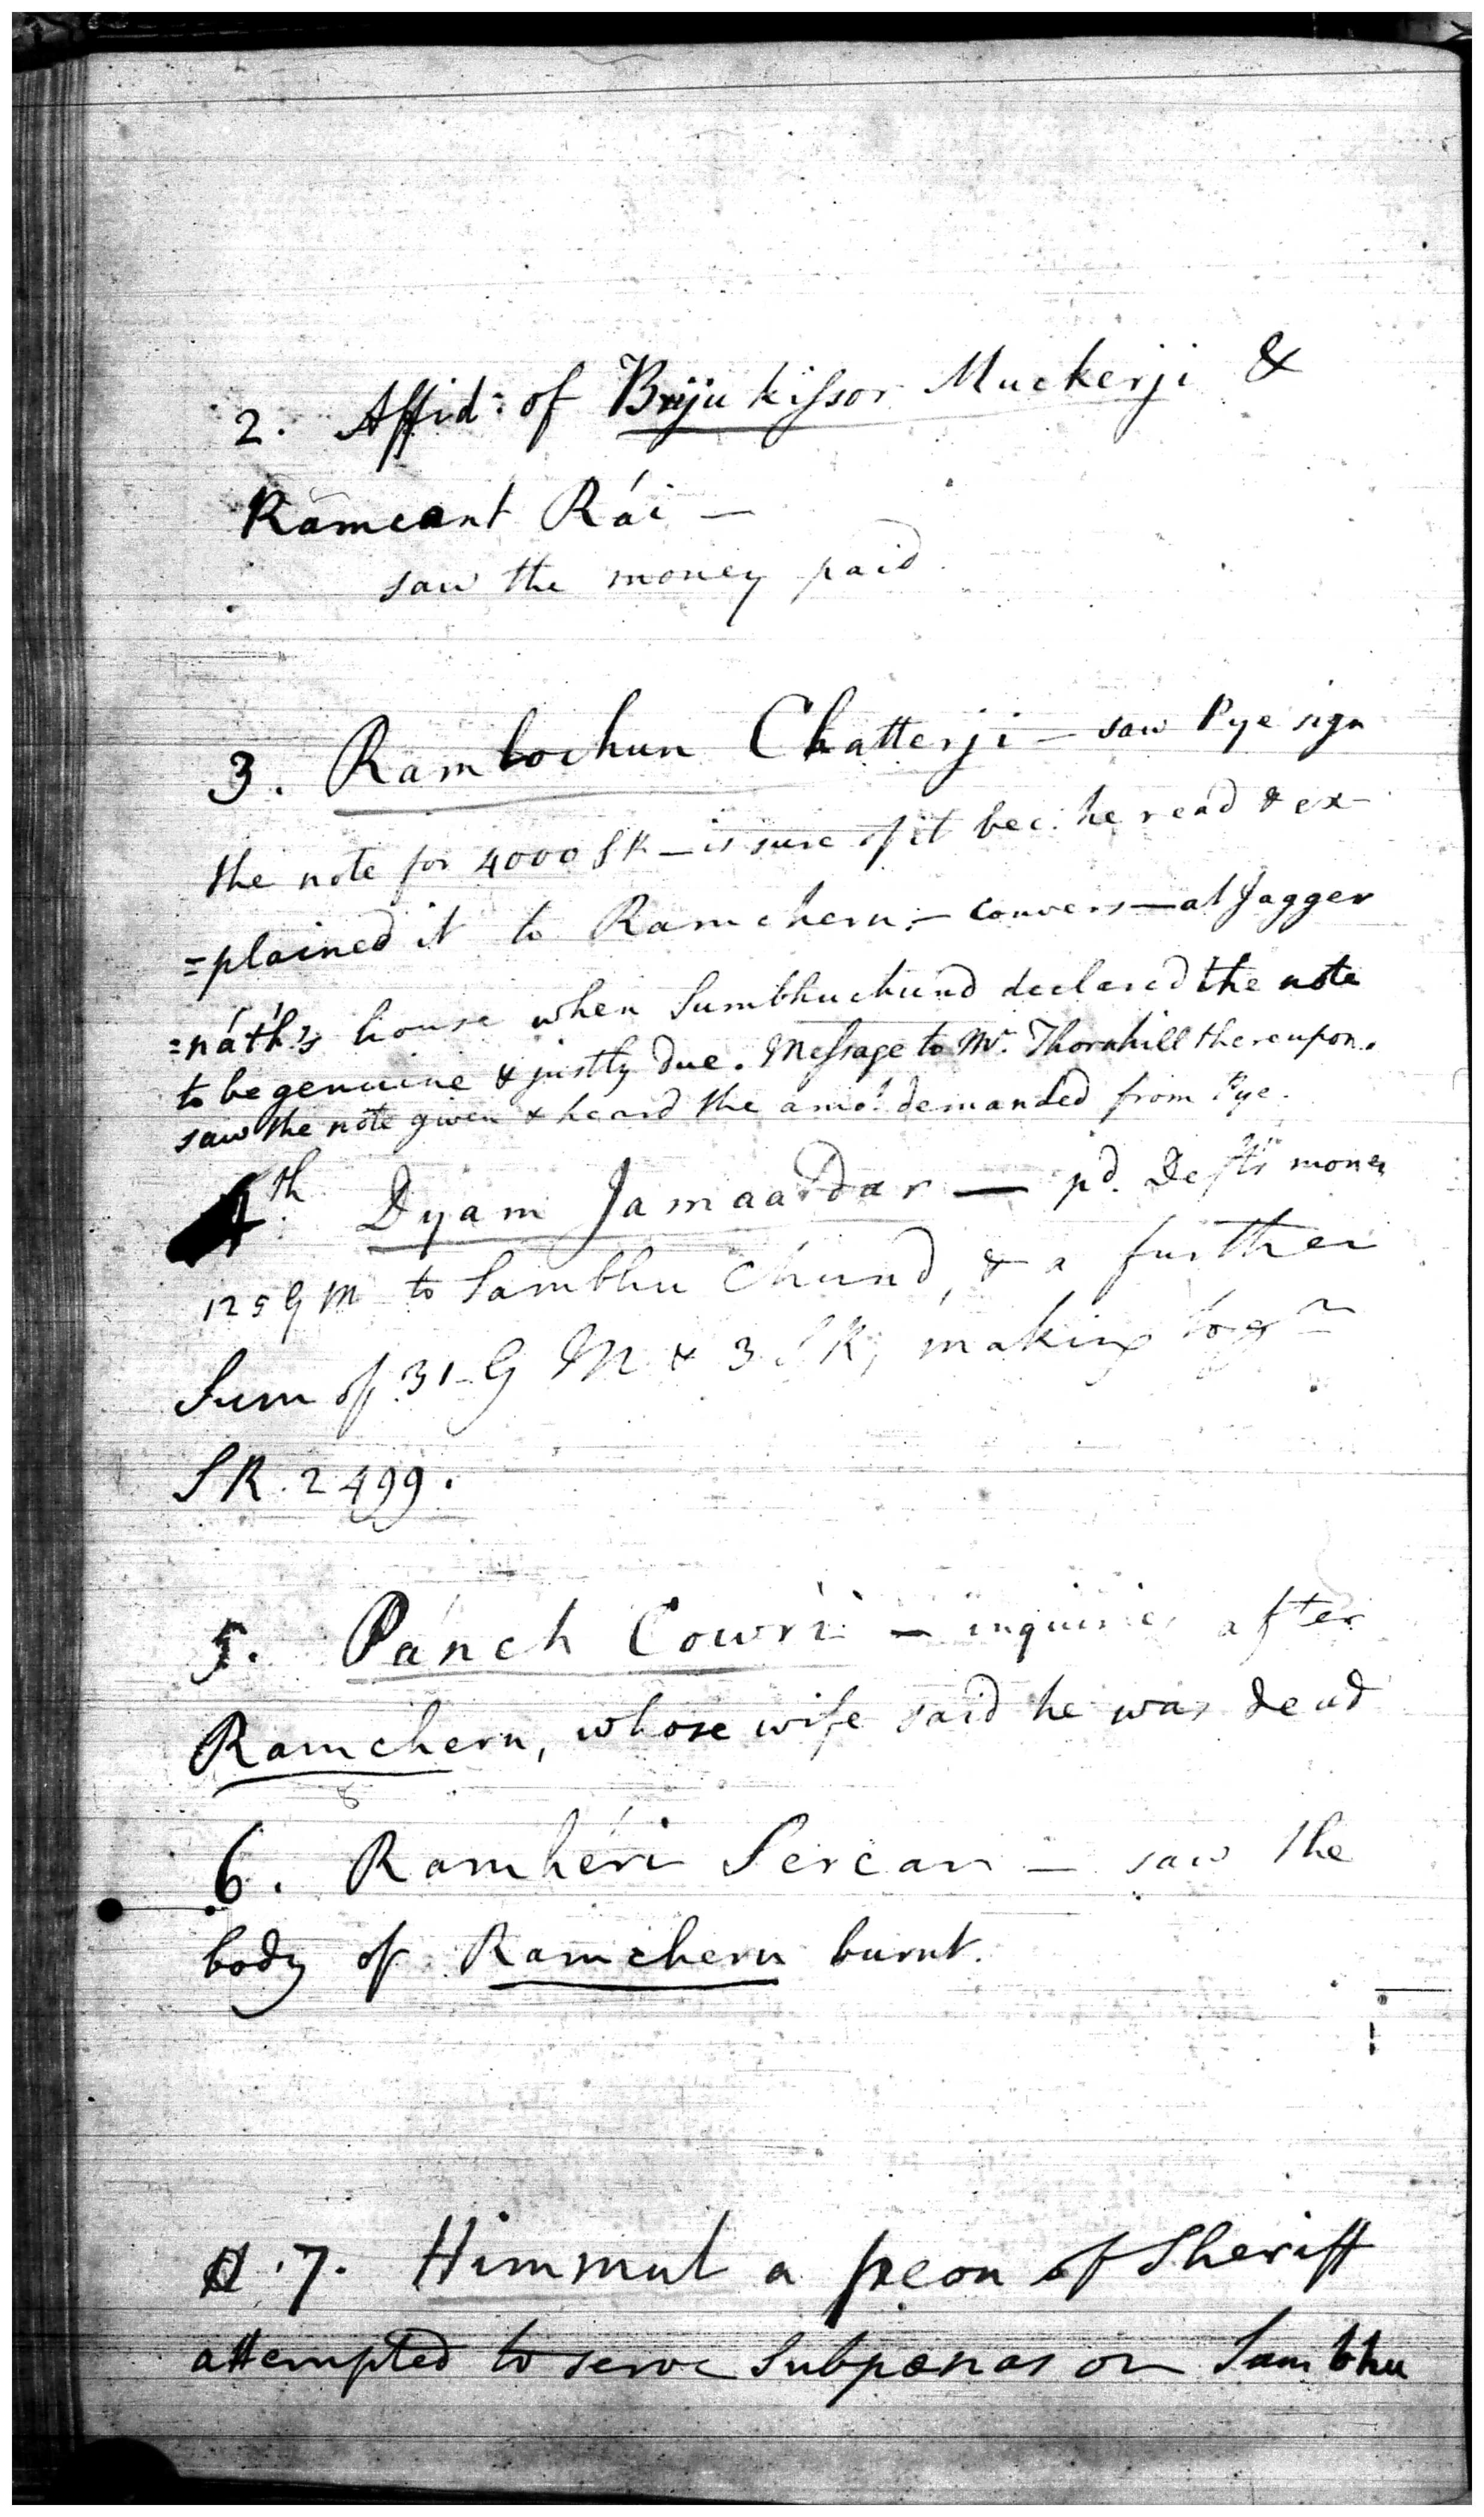 2. Affid: of Briju kissor Muckerji &
Rāmcant Rái —
saw the money paid
3. Ramlochun Chatterji — saw Pye sign
the note for 4000 SR — is sure of it bec: he read & ex-
=plained it to Ramchern; — convers — at Jagger
=náth's house when Sumbhuchund declared the note
to be genuine & justly due. Message to Mr. Thornhill thereupon.
saw the note given & heard the amot. demanded from Pye.
4th. Dyam Jamaadar — pd. Defts money
125 G M to Sambhu Chund, & a further
Sum of 31 G M & 3 SR, making togr
SR. 2499.
5. Pánch Cowri — inquiries after
Ramchern, whose wife said he was dead
6. Ramhéri Sercar — saw the
body of Ramchern burnt.
7. Himmut a peon of Sheriff
attempted to serve Subpœnas on Sambhu